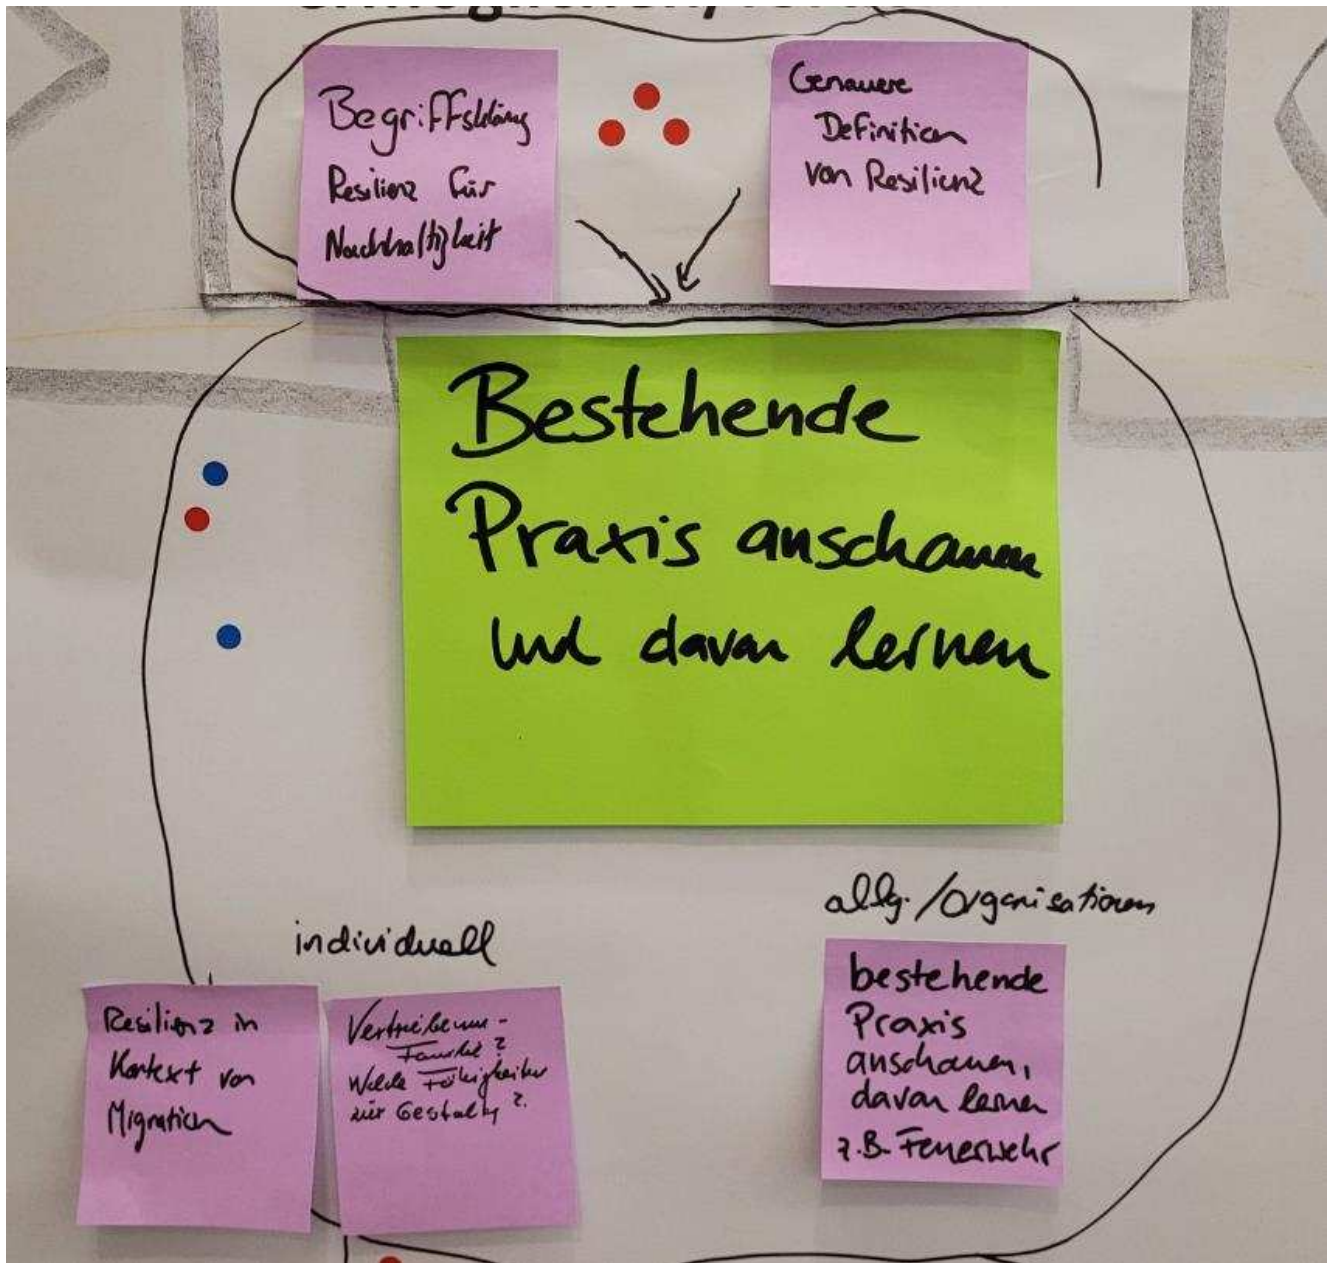 Begriffsklärung
Resilienz für
Nachhaltigkeit
Genauere
Definition
von Resilienz
Bestehende
Praxis anschauen
und davon lernen
individuell
allg. / Organisationen
Resilienz in
Kontext von
Migration
Welche Fähigkeiten
zur Gestaltg ?
bestehende
Praxis
anschauen,
davon lernen
z.B. Feuerwehr